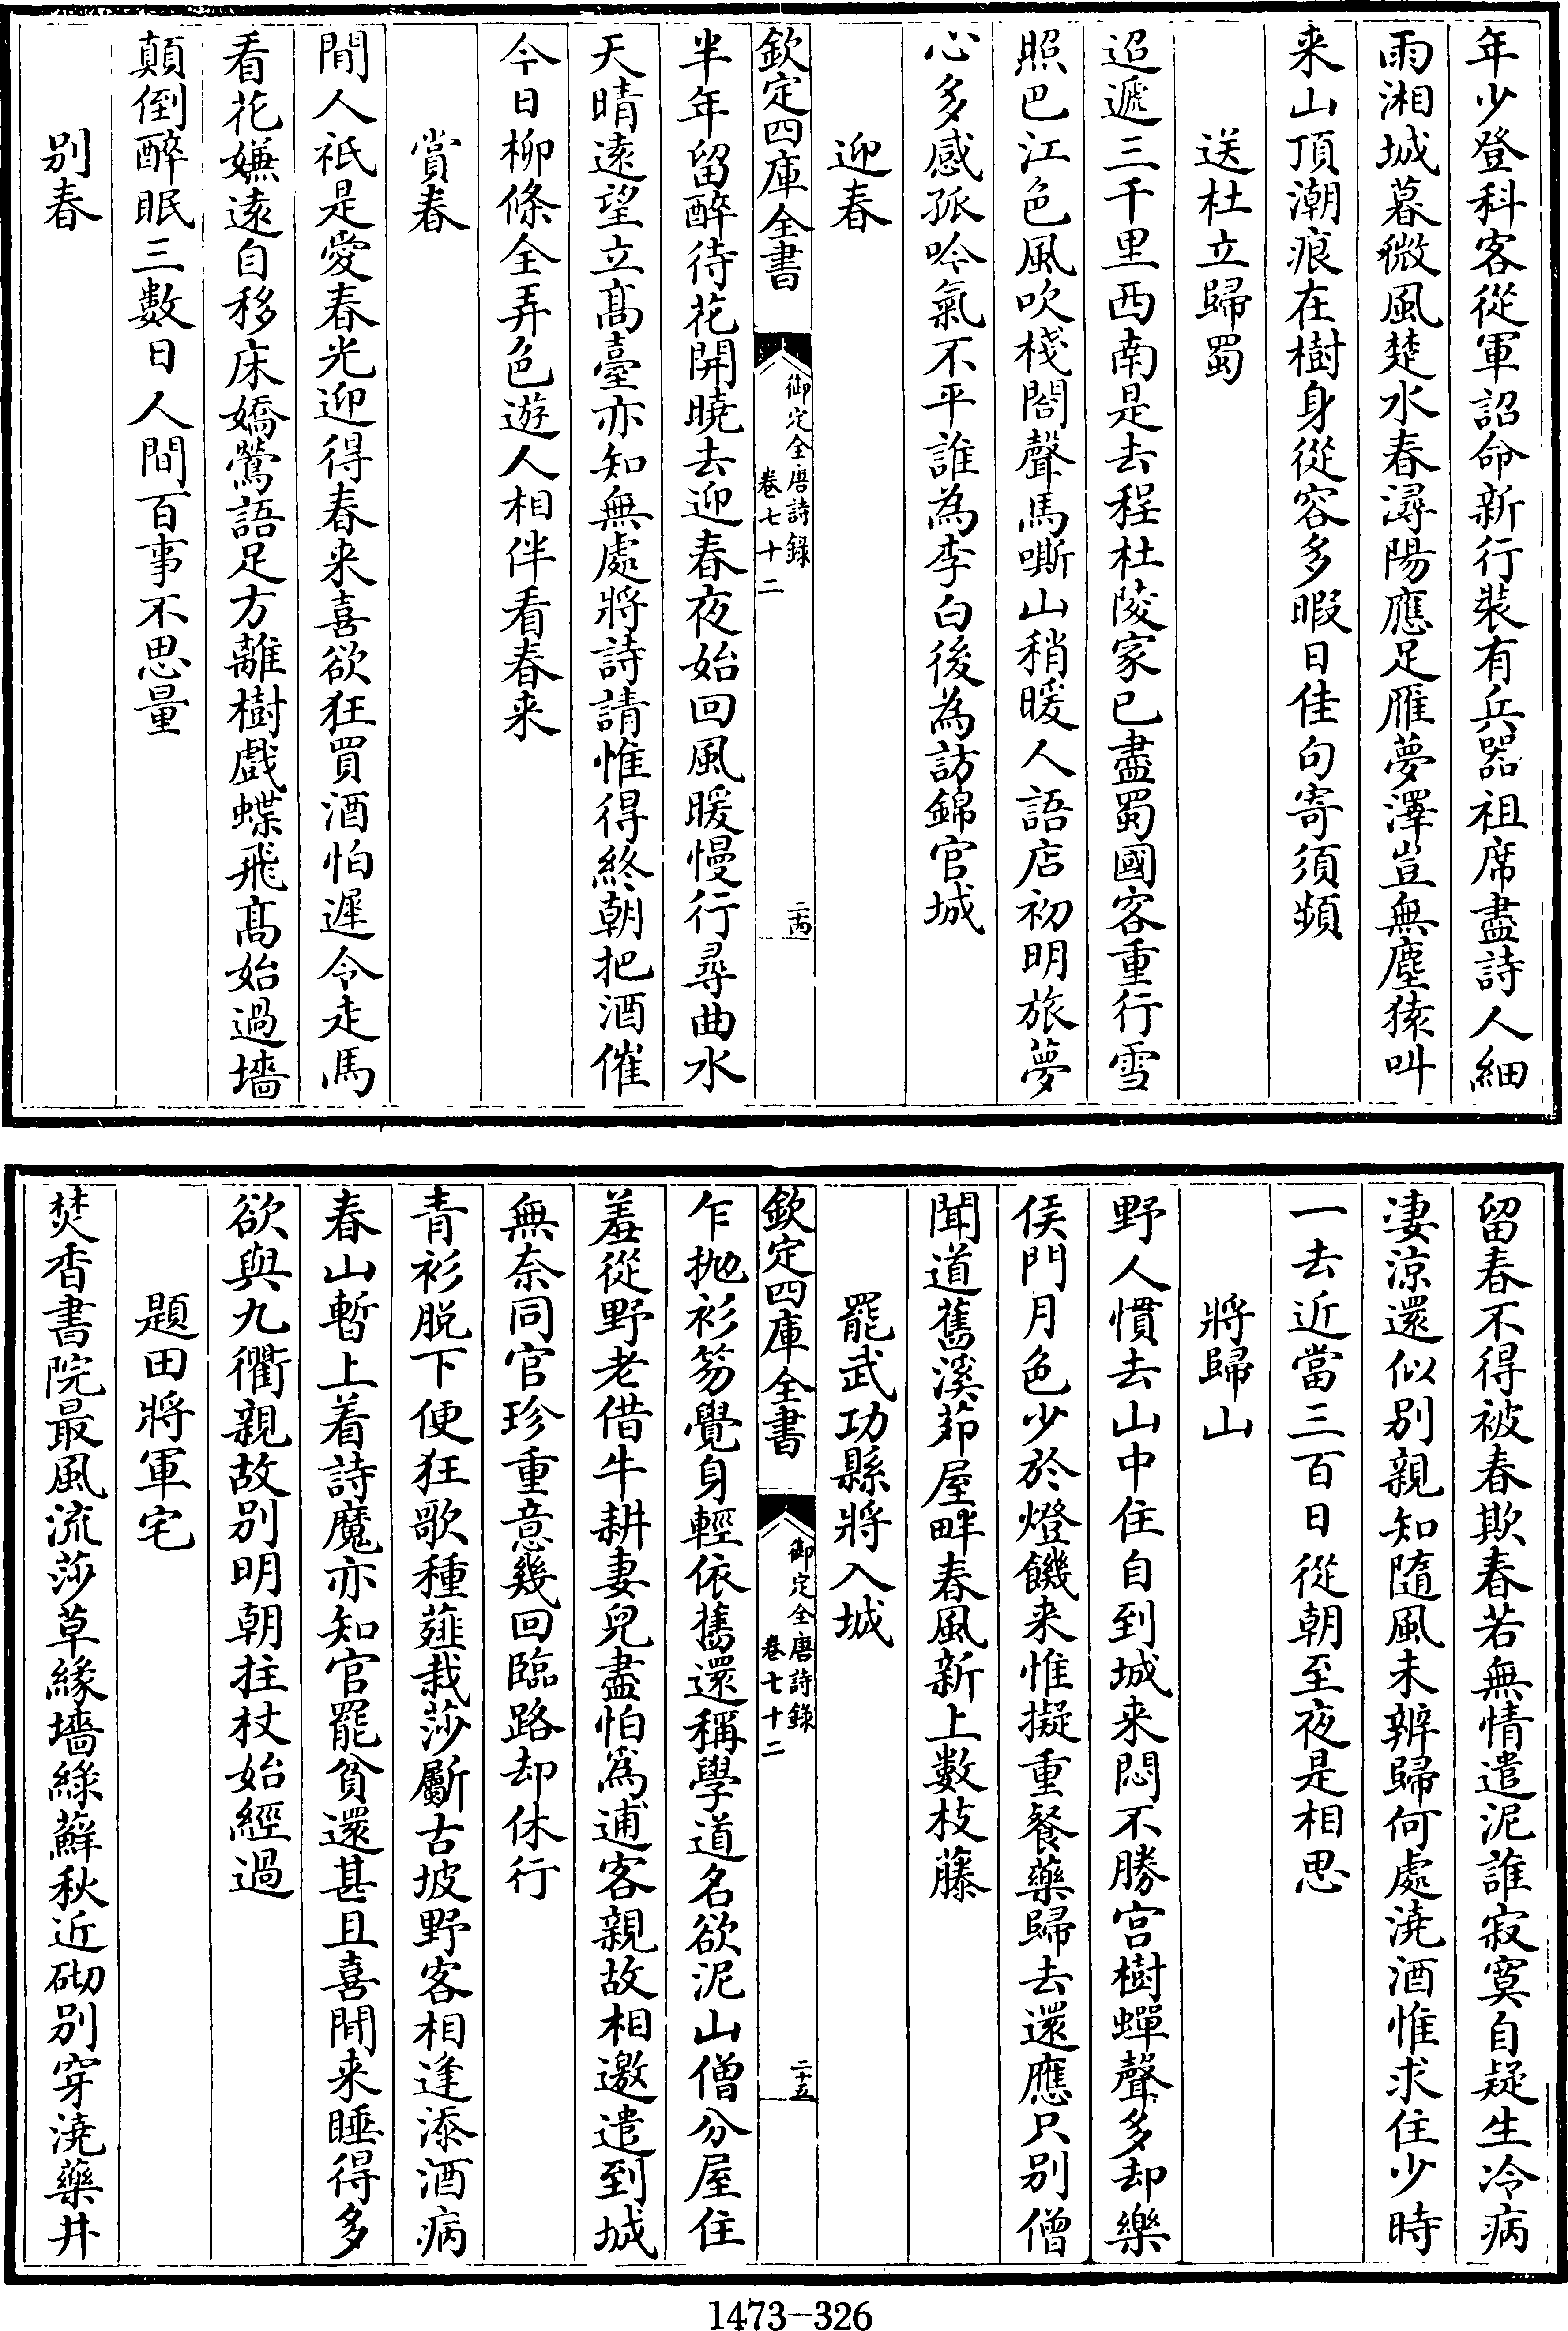 年少登科客從軍詔命新行裝有兵器祖席盡詩人細
雨湘城暮微風楚水春潯陽應足雁夢澤豈無塵猿叫
来山頂潮痕在樹身從容多暇日佳句寄須頻
送杜立歸蜀
迢遞三千里西南是去程杜陵家已盡蜀國客重行雪
照巴江色風吹棧閣聲馬嘶山稍暖人語店初明旅夢
心多感孤吟氣不平誰為李白後為訪錦官城
迎春
欽定四庫全書
御定全唐詩錄
卷七十二
二十四
半年留醉待花開曉去迎春夜始回風暖慢行尋曲水
天晴遠望立髙臺亦知無處將詩請惟得終朝把酒催
今日柳條全弄色遊人相伴看春来
賞春
閒人祇是愛春光迎得春来喜欲狂買酒怕遲令走馬
看花嫌遠自移床嬌鶯語足方離樹戲蝶飛髙始過墻
顛倒醉眠三數日人間百事不思量
别春
留春不得被春欺春若無情遣泥誰寂寞自疑生冷病
淒涼還似别親知隨風未辨歸何處澆酒惟求住少時
一去近當三百日從朝至夜是相思
將歸山
野人慣去山中住自到城来悶不勝宮樹蟬聲多却樂
侯門月色少於燈饑来惟擬重餐藥歸去還應只别僧
聞道舊溪茆屋畔春風新上數枝藤
罷武功縣將入城
欽定四庫全書
御定全唐詩錄
卷七十二
二十五
乍抛衫笏覺身輕依舊還稱學道名欲泥山僧分屋住
羞從野老借牛耕妻兒盡怕爲逋客親故相邀遣到城
無奈同官珍重意幾回臨路却休行
青衫脱下便狂歌種薤栽莎斸古坡野客相逢添酒病
春山暫上着詩魔亦知官罷貧還甚且喜閒来睡得多
欲與九衢親故别明朝拄杖始經過
題田將軍宅
焚香書院最風流莎草緣墻綠蘚秋近砌别穿澆藥井
1473-326